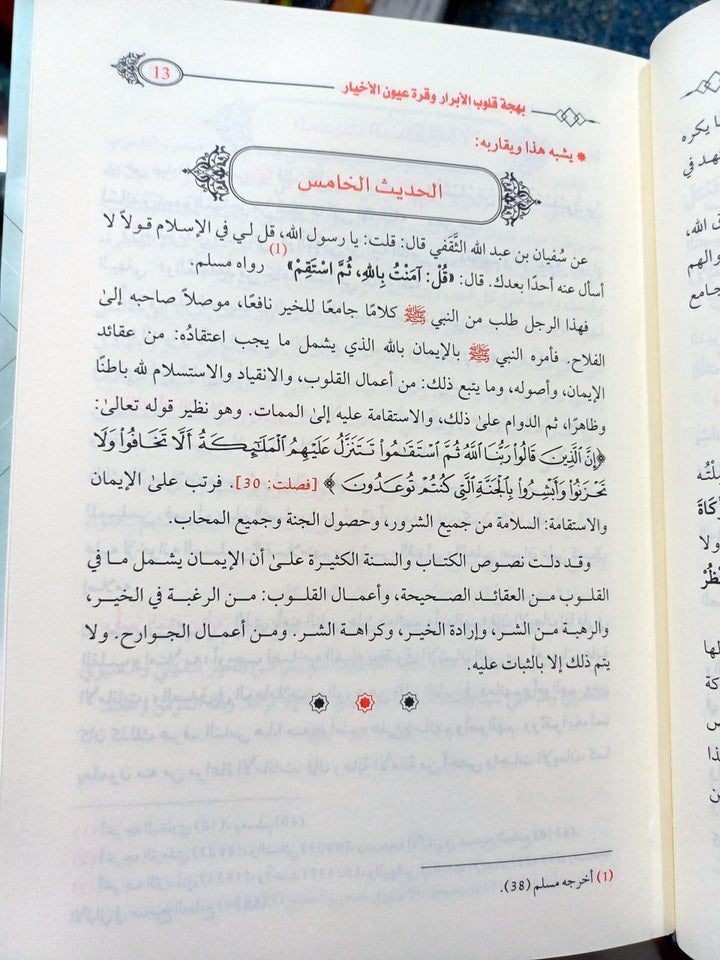 13
بهجة قلوب الأبرار وقرة عيون الأخيار
* يشبه هذا ويقاربه:
الحديث الخامس
عن سُفيان بن عبد الله الثَّقَفي قال: قلت: يا رسول الله، قل لي في الإسلام قولاً لا
أسأل عنه أحدًا بعدك. قال: «قُلْ: آمَنْتُ بِاللهِ، ثُمَّ اسْتَقِمْ» (1) رواه مسلم.
فهذا الرجل طلب من النبي ﷺ كلامًا جامعًا للخير نافعًا، موصلاً صاحبه إلىٰ
الفلاح. فأمره النبي ﷺ بالإيمان بالله الذي يشمل ما يجب اعتقادُه: من عقائد
الإيمان، وأصوله، وما يتبع ذلك: من أعمال القلوب، والانقياد والاستسلام لله باطنًا
وظاهرًا، ثم الدوام علىٰ ذلك، والاستقامة عليه إلىٰ الممات. وهو نظير قوله تعالىٰ:
﴿إِنَّ الَّذِينَ قَالُوا رَبُّنَا اللَّهُ ثُمَّ اسْتَقَامُوا تَتَنَزَّلُ عَلَيْهِمُ الْمَلَائِكَةُ أَلَّا تَخَافُوا وَلَا
تَحْزَنُوا وَأَبْشِرُوا بِالْجَنَّةِ الَّتِي كُنتُمْ تُوعَدُونَ﴾ [فصلت: 30]. فرتب علىٰ الإيمان
والاستقامة: السلامة من جميع الشرور، وحصول الجنة وجميع المحاب.
وقد دلت نصوص الكتاب والسنة الكثيرة علىٰ أن الإيمان يشمل ما في
القلوب من العقائد الصحيحة، وأعمال القلوب: من الرغبة في الخير،
والرهبة من الشر، وإرادة الخير، وكراهة الشر. ومن أعمال الجوارح. ولا
يتم ذلك إلا بالثبات عليه.
(1) أخرجه مسلم (38).